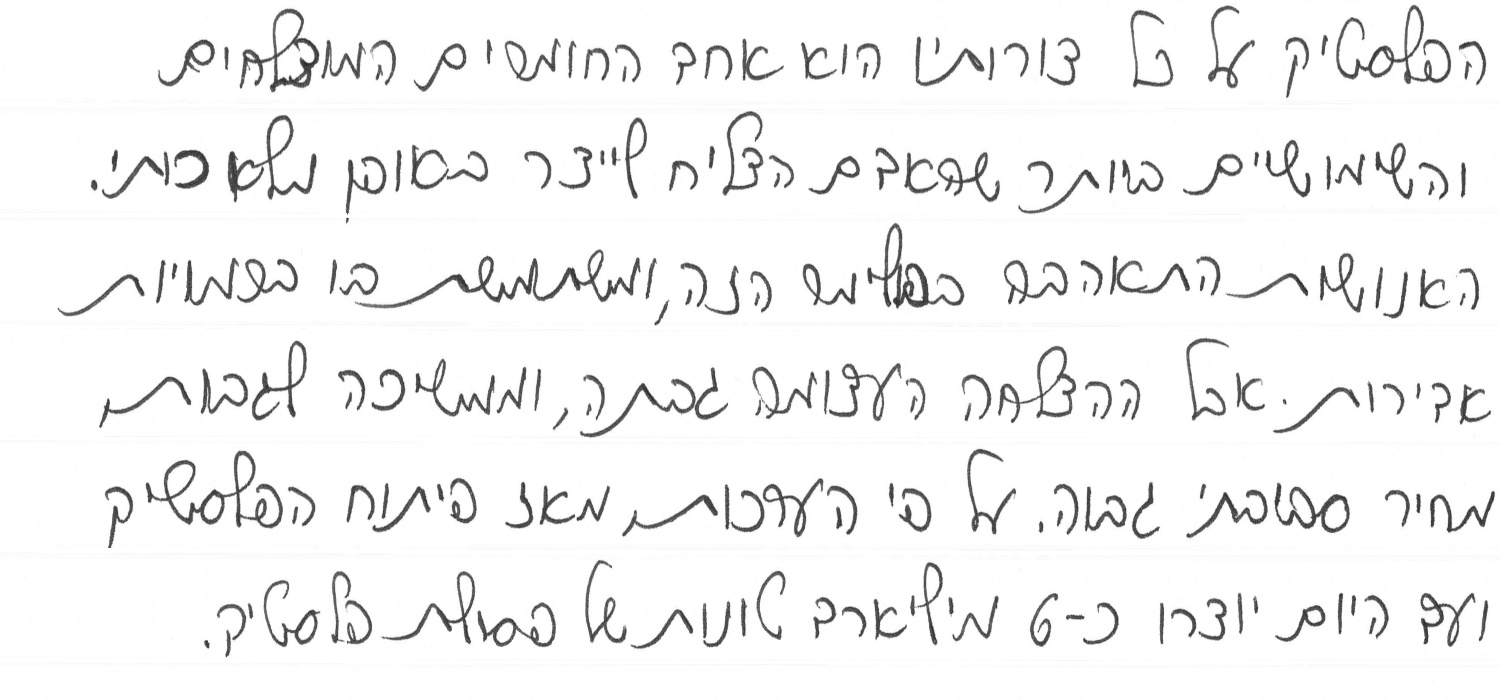 הפלסטיק על כל צורותיו הוא אחד החומרים המוצלחים
והשימושיים ביותר שהאדם הצליח לייצר באופן מלאכותי.
האנושות התאהבה בפולימר הזה, ומשתמשת בו בכמויות
אדירות. אבל ההצלחה העצומה גבתה, וממשיכה לגבות,
מחיר סביבתי גבוה. על פי הערכות, מאז פיתוח הפלסטיק
ועד היום יוצרו כ-6 מיליארד טונות של פסולת פלסטיק.